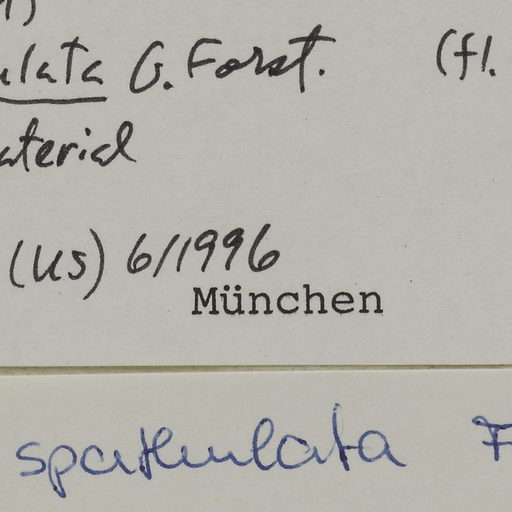 ulata G. Forst. (fl.
aterial
(US) 6/1996
München
spathulata F